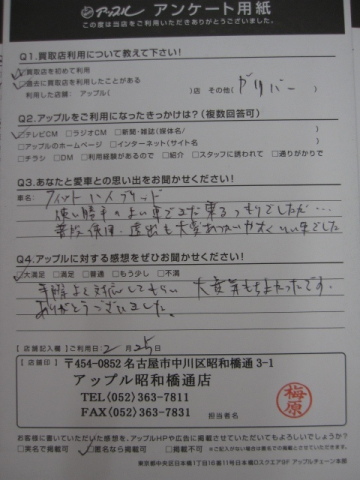 アップル アンケート用紙
この度は当店をご利用いただきありがとうございました。
Q1.買取店利用について教えて下さい!
☑買取店を初めて利用
☑過去に買取店を利用したことがある
利用した店舗: アップル( )店 その他( ガリバー )
Q2.アップルをご利用になったきっかけは?(複数回答可)
☑テレビCM □ラジオCM □新聞・雑誌(媒体名/ )
□アップルのホームページ □インターネット(サイト名 )
□チラシ □DM □利用経験があるので □紹介 □スタッフに誘われて □通りがかりで
Q3.あなたと愛車との思い出をお聞かせください!
車名: フィットハイブリッド
使い勝手のよい車でまだ乗るつもりでしたが…
普段使用、遠出も大変ありがたくいい車でした
Q4.アップルに対する感想をぜひお聞かせください!
☑大満足 □満足 □普通 □もう少し □不満
手際よく対応してもらい 大変気もちよかったです。
ありがとうございました。
【店舗記入欄】ご利用日: 2月25日
【店舗印】
〒454-0852 名古屋市中川区昭和橋通 3-1
アップル昭和橋通店
TEL(052)363-7811
FAX(052)363-7831
担当者名
梅原
お客様に書いていただいた感想を、アップルHPや広告に掲載させていただいてもよろしいでしょうか?
□実名で掲載可 ☑匿名なら掲載可 □掲載不可 ※ご記入がない場合は匿名での掲載とさせていただきます。
東京都中央区日本橋1丁目16番11号日本橋ロスクエア8F アップルチェーン本部